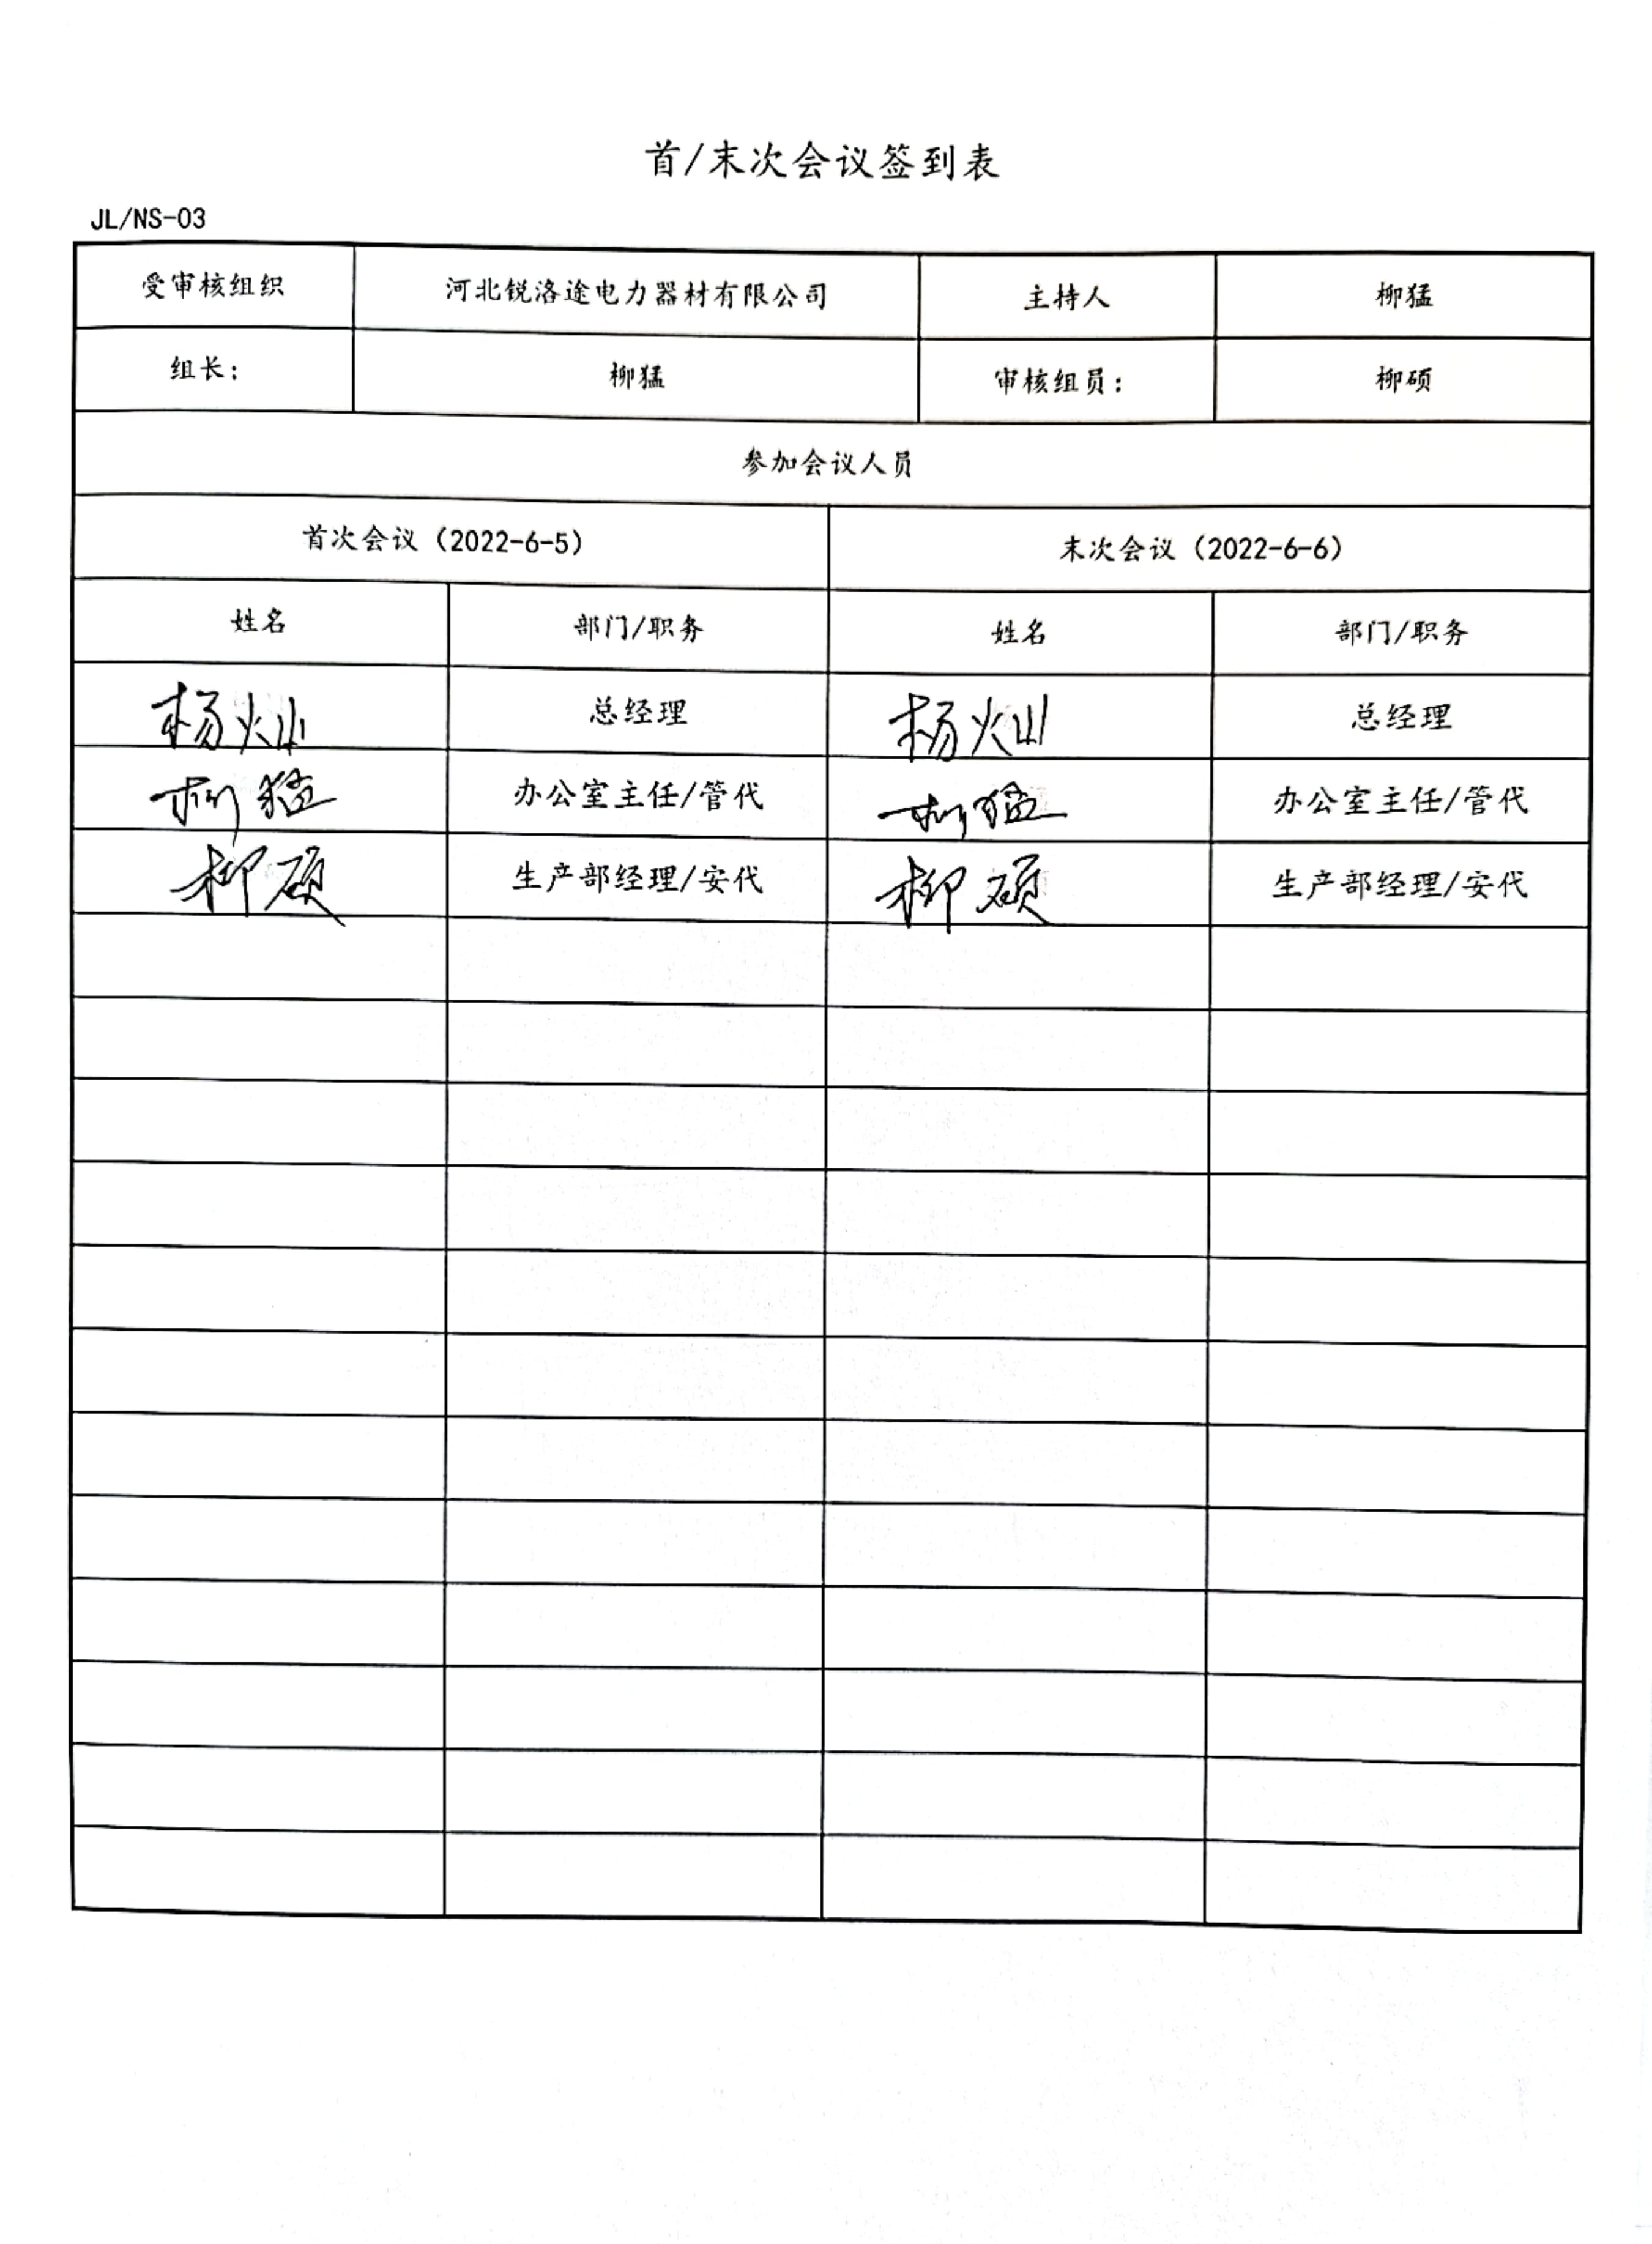 首/末次会议签到表
JL/NS-03
受审核组织 河北锐洛途电力器材有限公司 主持人 柳猛
组长： 柳猛 审核组员： 柳硕
参加会议人员
首次会议（2022-6-5） 末次会议（2022-6-6）
姓名 部门/职务 姓名 部门/职务
杨灿 总经理 杨灿 总经理
柳猛 办公室主任/管代 柳猛 办公室主任/管代
柳硕 生产部经理/安代 柳硕 生产部经理/安代